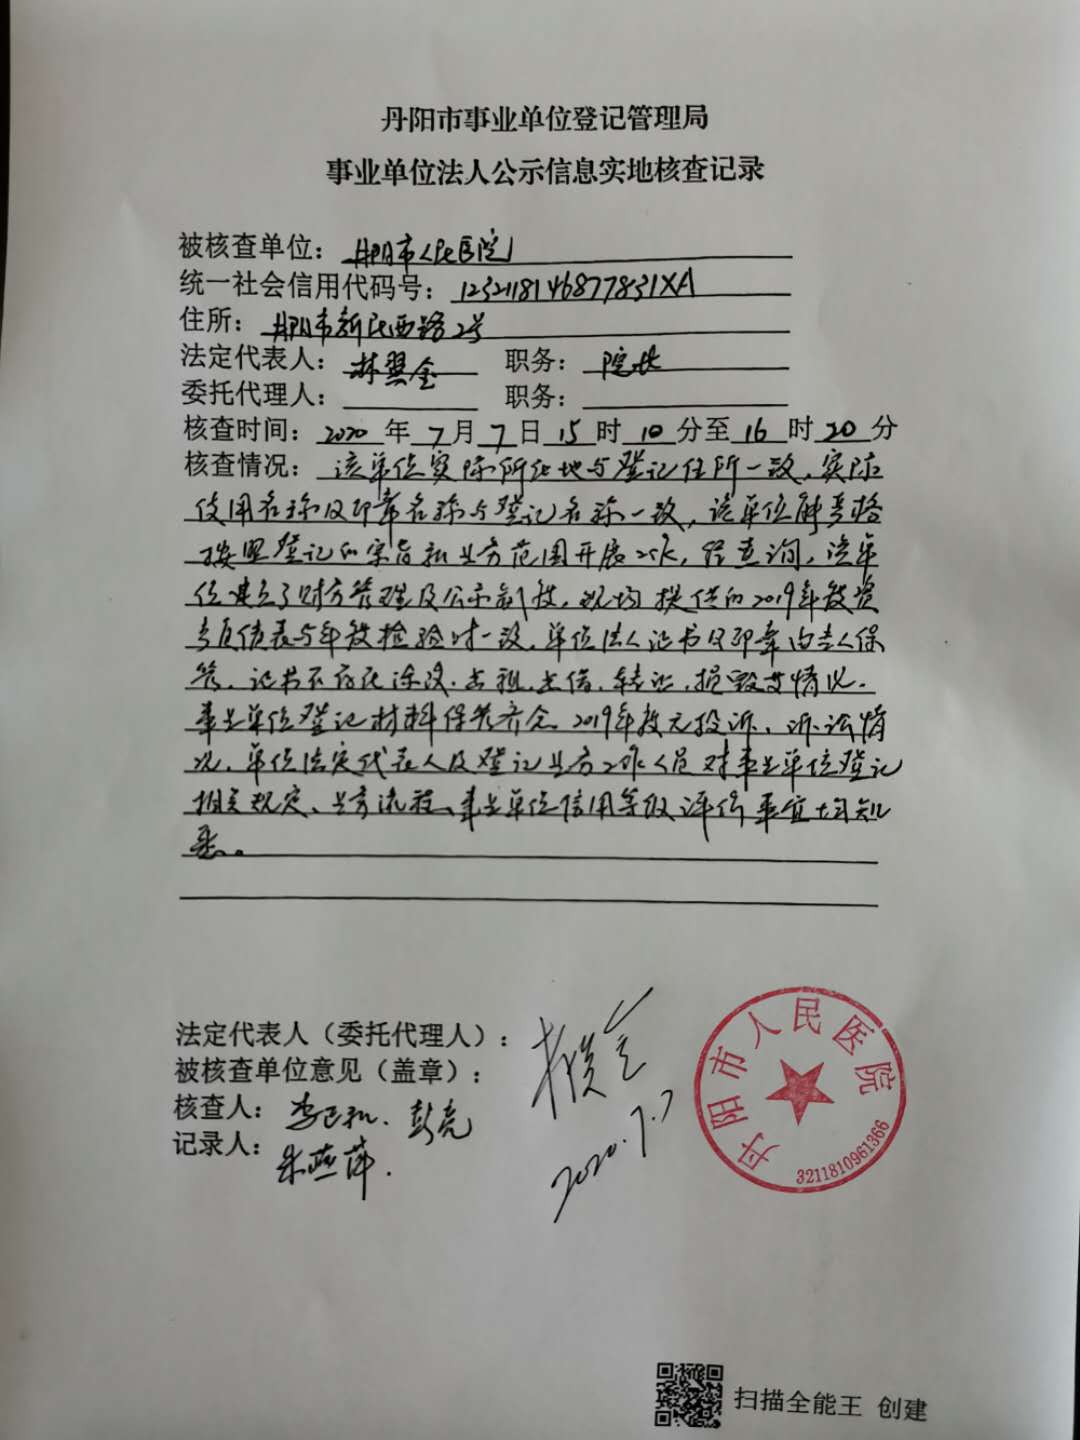 丹阳市事业单位登记管理局
事业单位法人公示信息实地核查记录
被核查单位：丹阳市人民医院
统一社会信用代码号：1232118146877831XA
住所：丹阳市新民西路2号
法定代表人：林翼金 职务：院长
委托代理人： 职务：
核查时间：2020年7月7日15时10分至16时20分
核查情况：该单位实际所在地与登记住所一致，实际
使用名称及印章名称与登记名称一致，该单位能严格
按照登记的宗旨和业务范围开展工作，经查询，该单
位建立了财务管理及公示制度，现场提供的2019年度资
产负债表与年度检验时一致，单位法人证书及印章由专人保
管，证书不存在涂改、出租、出借、转让、损毁等情况。
事业单位登记材料保管齐全，2019年度无投诉、诉讼情
况，单位法定代表人及登记业务工作人员对事业单位登记
相关规定、业务流程、事业单位信用等级评价事宜均知
悉。
法定代表人（委托代理人）：
被核查单位意见（盖章）：
核查人：李正和、彭亮
记录人：朱燕萍
2020.7.7
丹阳市人民医院
3211810961366
扫描全能王 创建